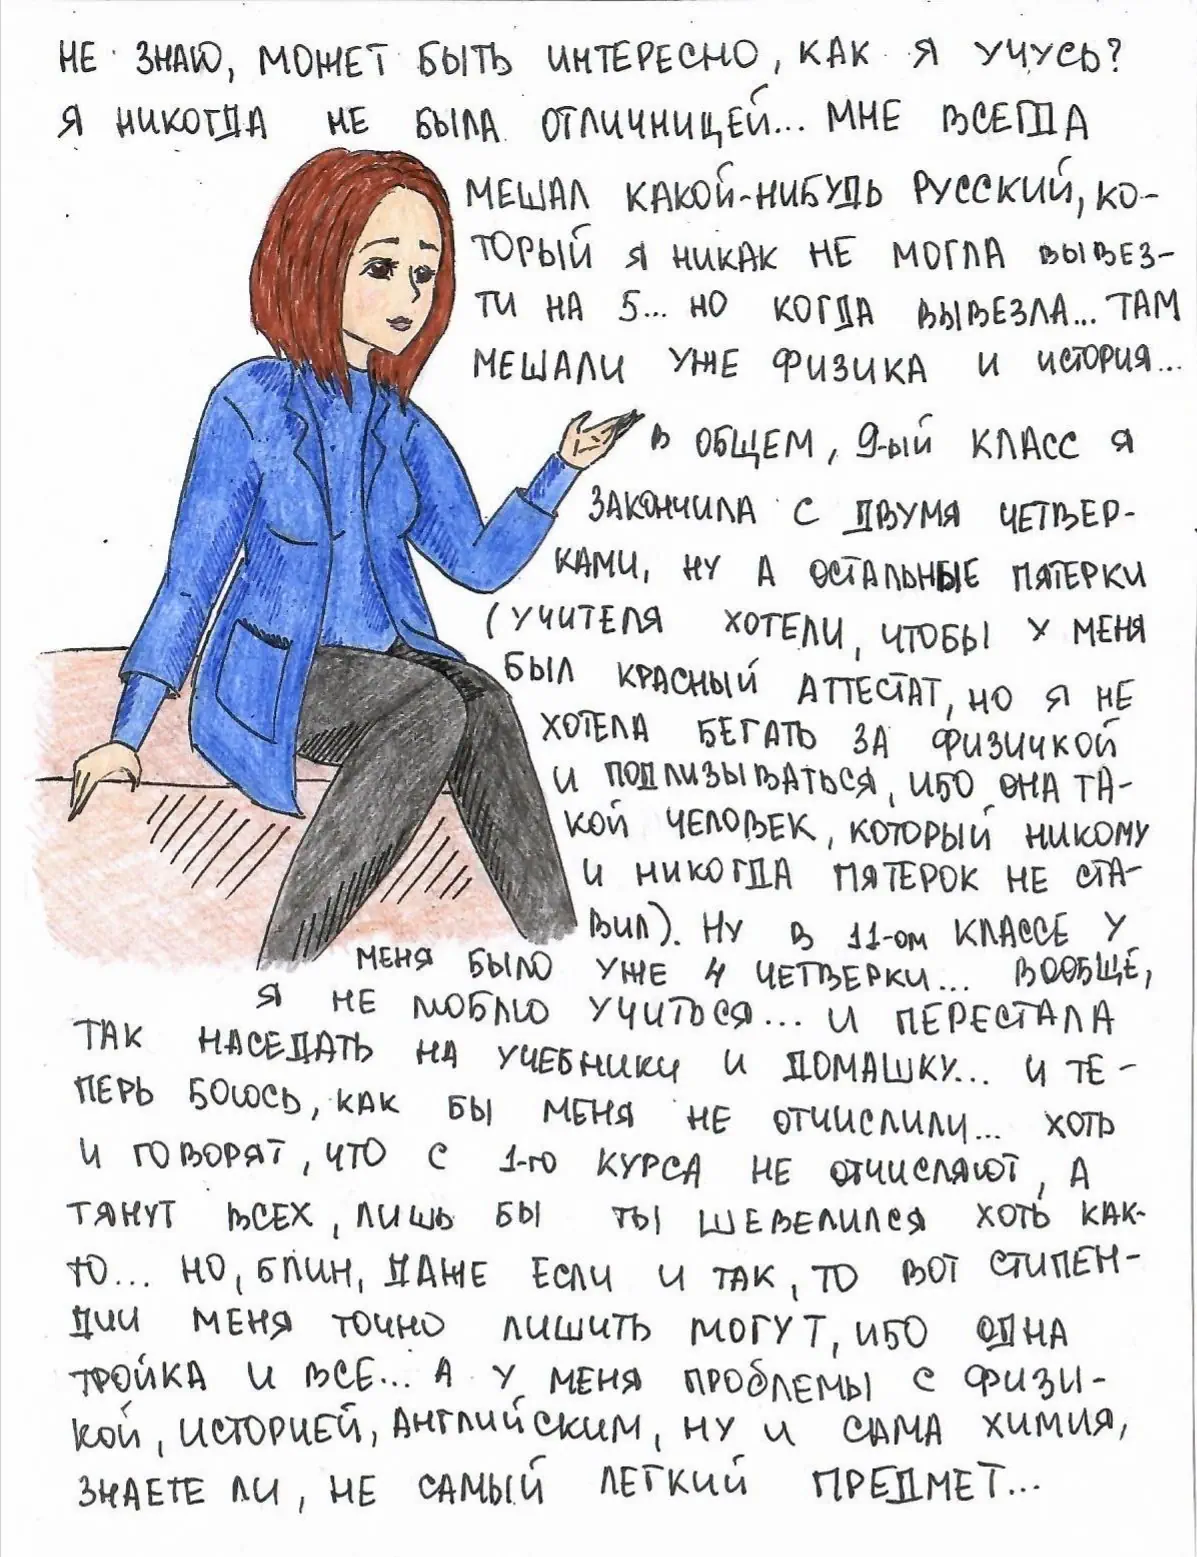 НЕ ЗНАЮ, МОЖЕТ БЫТЬ ИНТЕРЕСНО, КАК Я УЧУСЬ?
Я НИКОГДА НЕ БЫЛА ОТЛИЧНИЦЕЙ... МНЕ ВСЕГДА
МЕШАЛ КАКОЙ-НИБУДЬ РУССКИЙ, КО-
ТОРЫЙ Я НИКАК НЕ МОГЛА ВЫВЕЗ-
ТИ НА 5... НО КОГДА ВЫВЕЗЛА... ТАМ
МЕШАЛИ УЖЕ ФИЗИКА И ИСТОРИЯ...
В ОБЩЕМ, 9-ЫЙ КЛАСС Я
ЗАКОНЧИЛА С ДВУМЯ ЧЕТВЕР-
КАМИ, НУ А ОСТАЛЬНЫЕ ПЯТЕРКИ
(УЧИТЕЛЯ ХОТЕЛИ, ЧТОБЫ У МЕНЯ
БЫЛ КРАСНЫЙ АТТЕСТАТ, НО Я НЕ
ХОТЕЛА БЕГАТЬ ЗА ФИЗИЧКОЙ
И ПОДЛИЗЫВАТЬСЯ, ИБО ОНА ТА-
КОЙ ЧЕЛОВЕК, КОТОРЫЙ НИКОМУ
И НИКОГДА ПЯТЕРОК НЕ СТА-
ВИЛ). НУ В 11-ОМ КЛАССЕ У
МЕНЯ БЫЛО УЖЕ 4 ЧЕТВЕРКИ... ВООБЩЕ,
Я НЕ ЛЮБЛЮ УЧИТЬСЯ... И ПЕРЕСТАЛА
ТАК НАСЕДАТЬ НА УЧЕБНИКИ И ДОМАШКУ... И ТЕ-
ПЕРЬ БОЮСЬ, КАК БЫ МЕНЯ НЕ ОТЧИСЛИЛИ... ХОТЬ
И ГОВОРЯТ, ЧТО С 1-ГО КУРСА НЕ ОТЧИСЛЯЮТ, А
ТЯНУТ ВСЕХ, ЛИШЬ БЫ ТЫ ШЕВЕЛИЛСЯ ХОТЬ КАК-
ТО... НО, БЛИН, ДАЖЕ ЕСЛИ И ТАК, ТО ВОТ СТИПЕН-
ДИИ МЕНЯ ТОЧНО ЛИШИТЬ МОГУТ, ИБО ОДНА
ТРОЙКА И ВСЕ... А У МЕНЯ ПРОБЛЕМЫ С ФИЗИ-
КОЙ, ИСТОРИЕЙ, АНГЛИЙСКИМ, НУ И САМА ХИМИЯ,
ЗНАЕТЕ ЛИ, НЕ САМЫЙ ЛЕГКИЙ ПРЕДМЕТ...